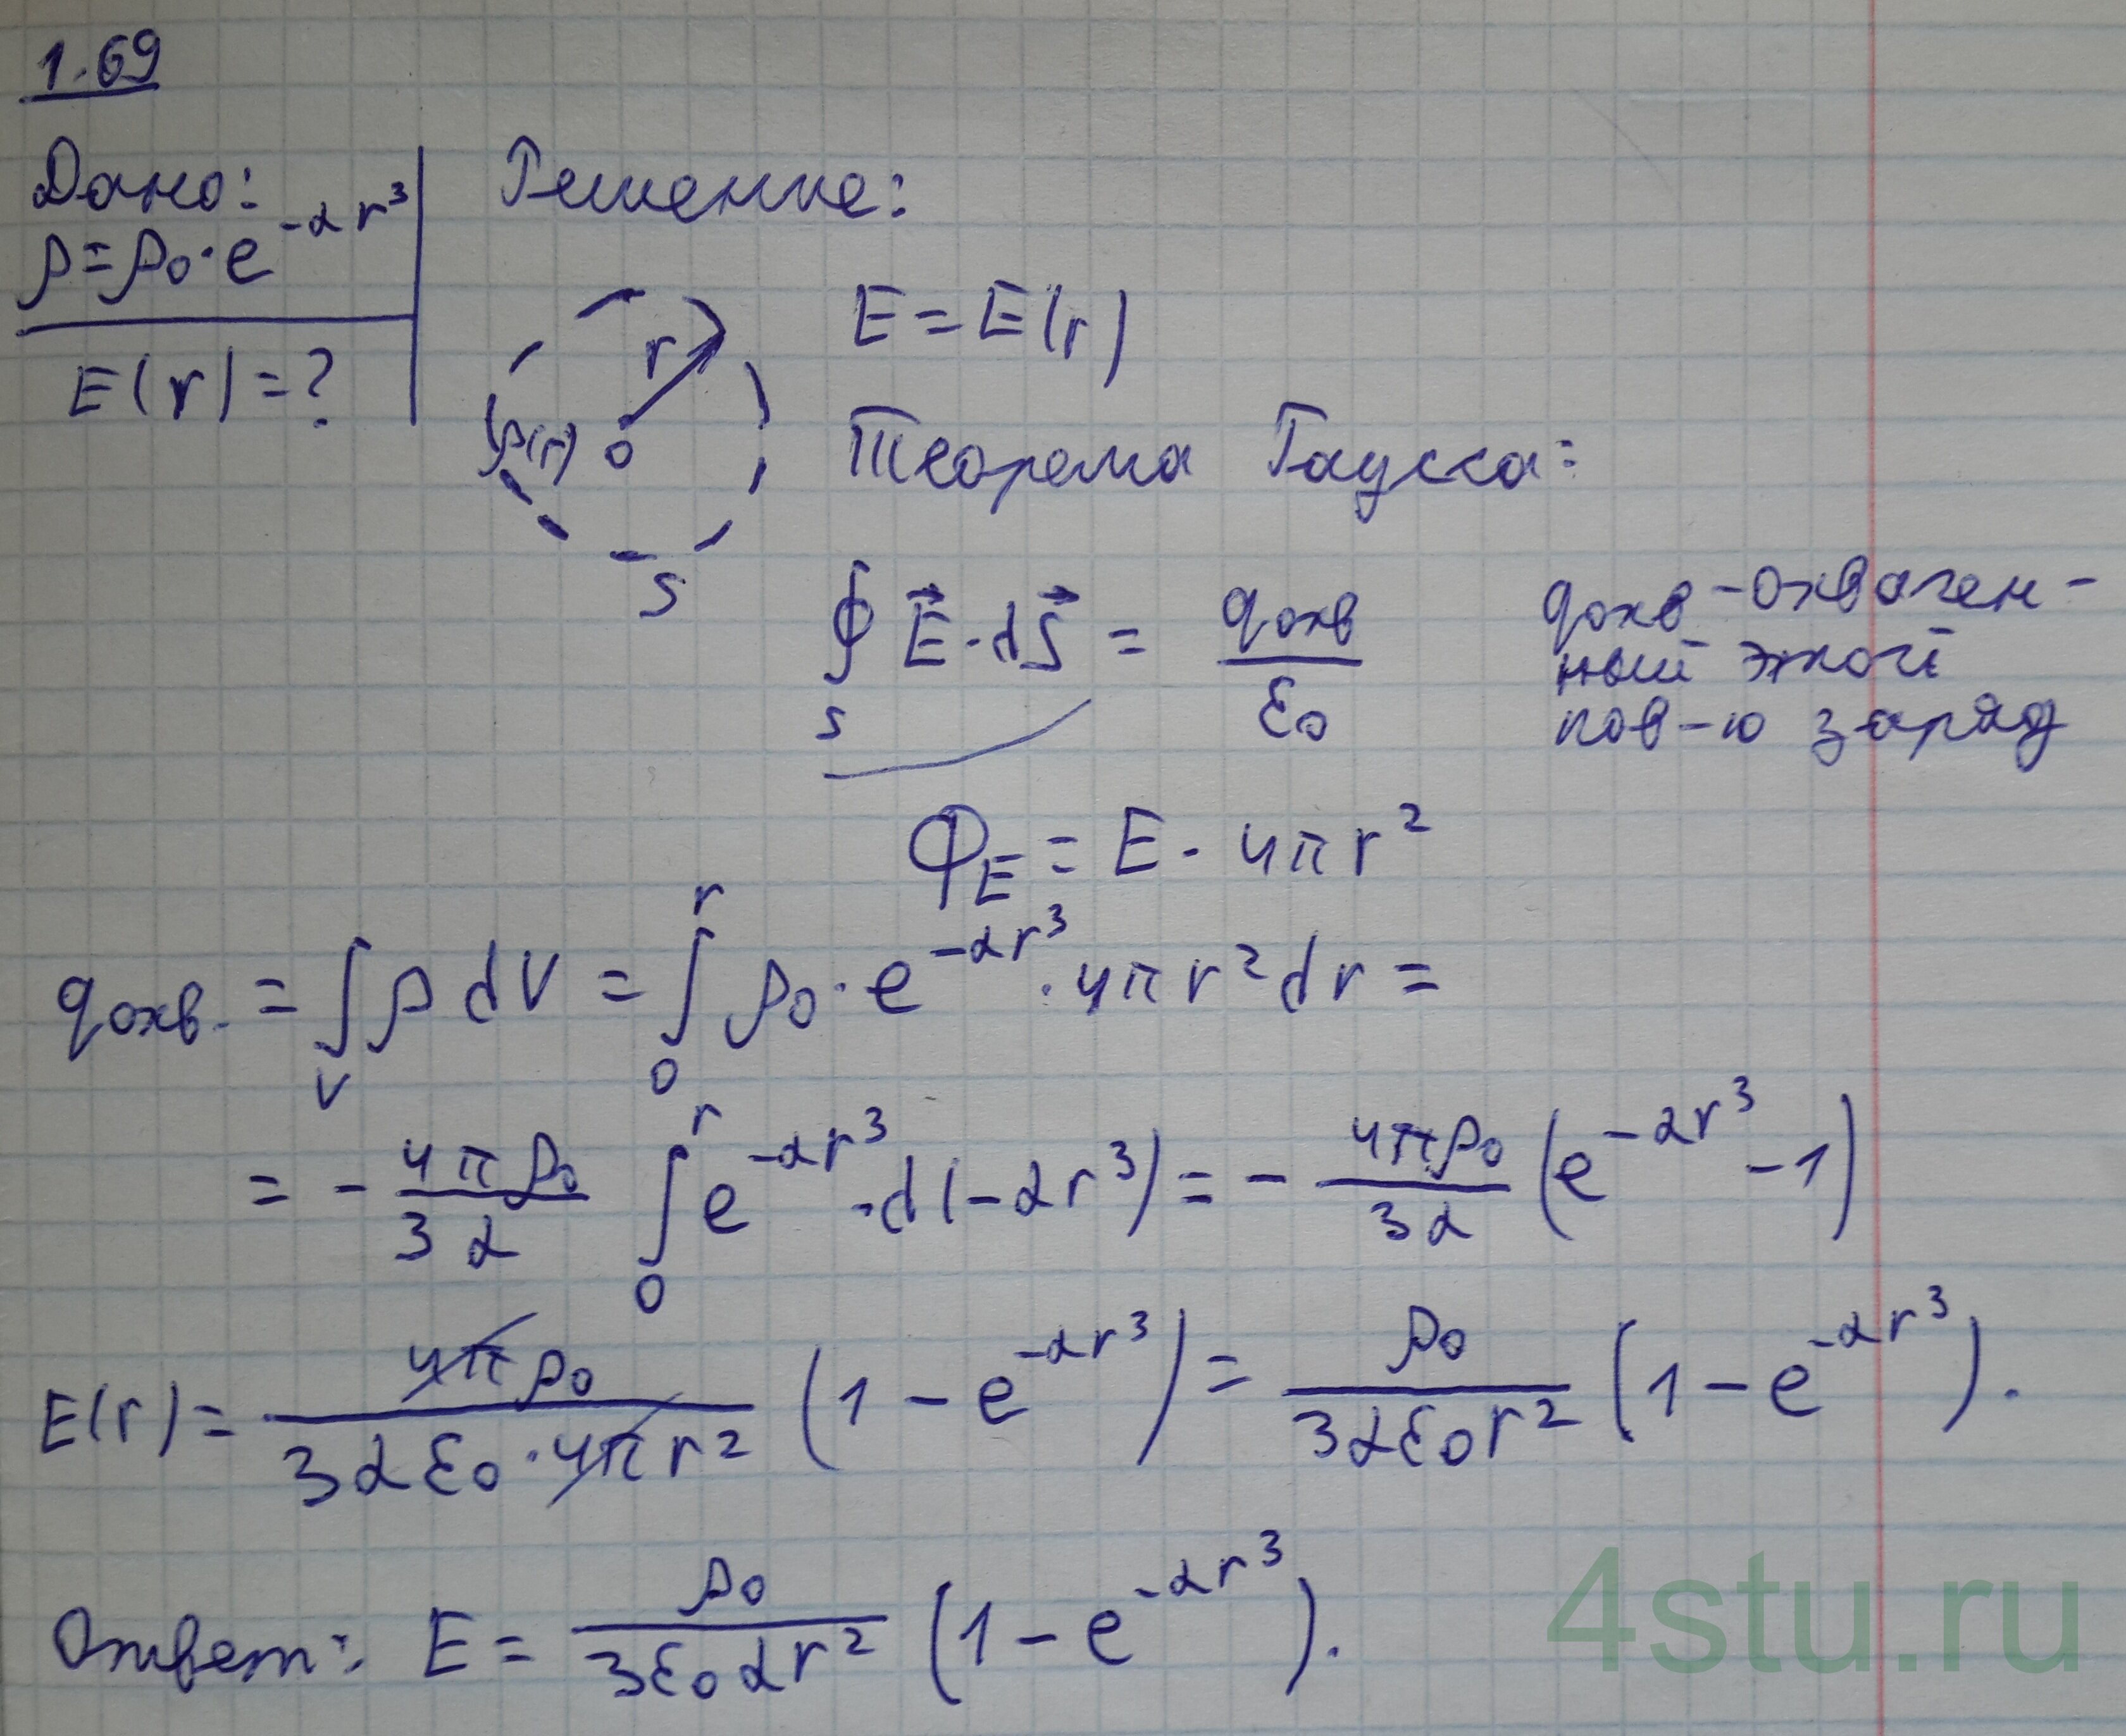 1.69
Дано:
ρ = ρ₀·e^(-αr³)
E(r) = ?
Решение:
r
ρ(r) O
S
E = E(r)
Теорема Гаусса:
∮_S E⃗·dS⃗ = qохв/ε₀
qохв – охвачен-
ный этой
пов-ю заряд
Φ_E = E·4πr²
qохв. = ∫_V ρ dV = ∫₀^r ρ₀·e^(-αr³)·4πr²dr =
= - (4πρ₀)/(3α) ∫₀^r e^(-αr³)·d(-αr³) = - (4πρ₀)/(3α) (e^(-αr³) - 1)
E(r) = (4πρ₀)/(3αε₀·4πr²) (1 - e^(-αr³)) = ρ₀/(3αε₀r²) (1 - e^(-αr³)).
Ответ: E = ρ₀/(3ε₀αr²) (1 - e^(-αr³)).
4stu.ru